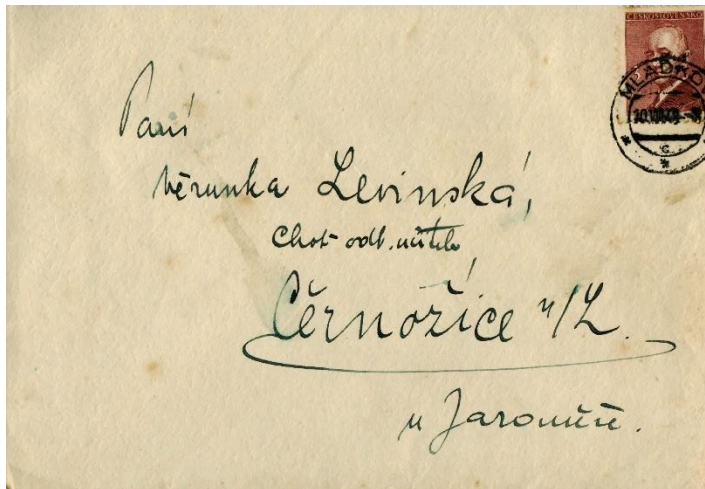 ČESKOSLOVENSKO
MLADKOV
C
Paní
Věrunka Levinská,
choť odb. učitele
Černožice n/L.
u Jaroměře.